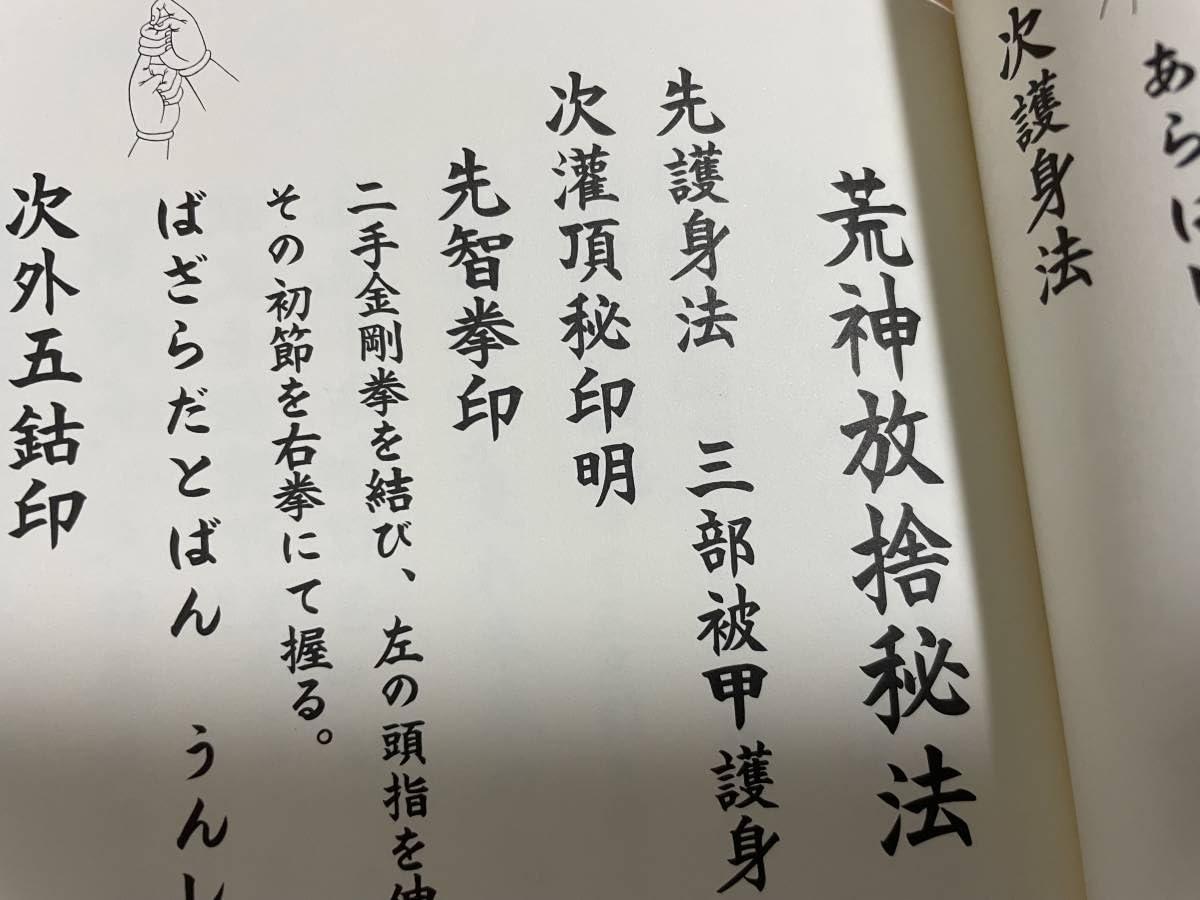 あらは
次護身法
荒神放捨秘法
先護身法　三部被甲護身
次灌頂秘印明
先智拳印
二手金剛拳を結び、左の頭指を伸
その初節を右拳にて握る。
ばざらだとばん　うん
次外五鈷印